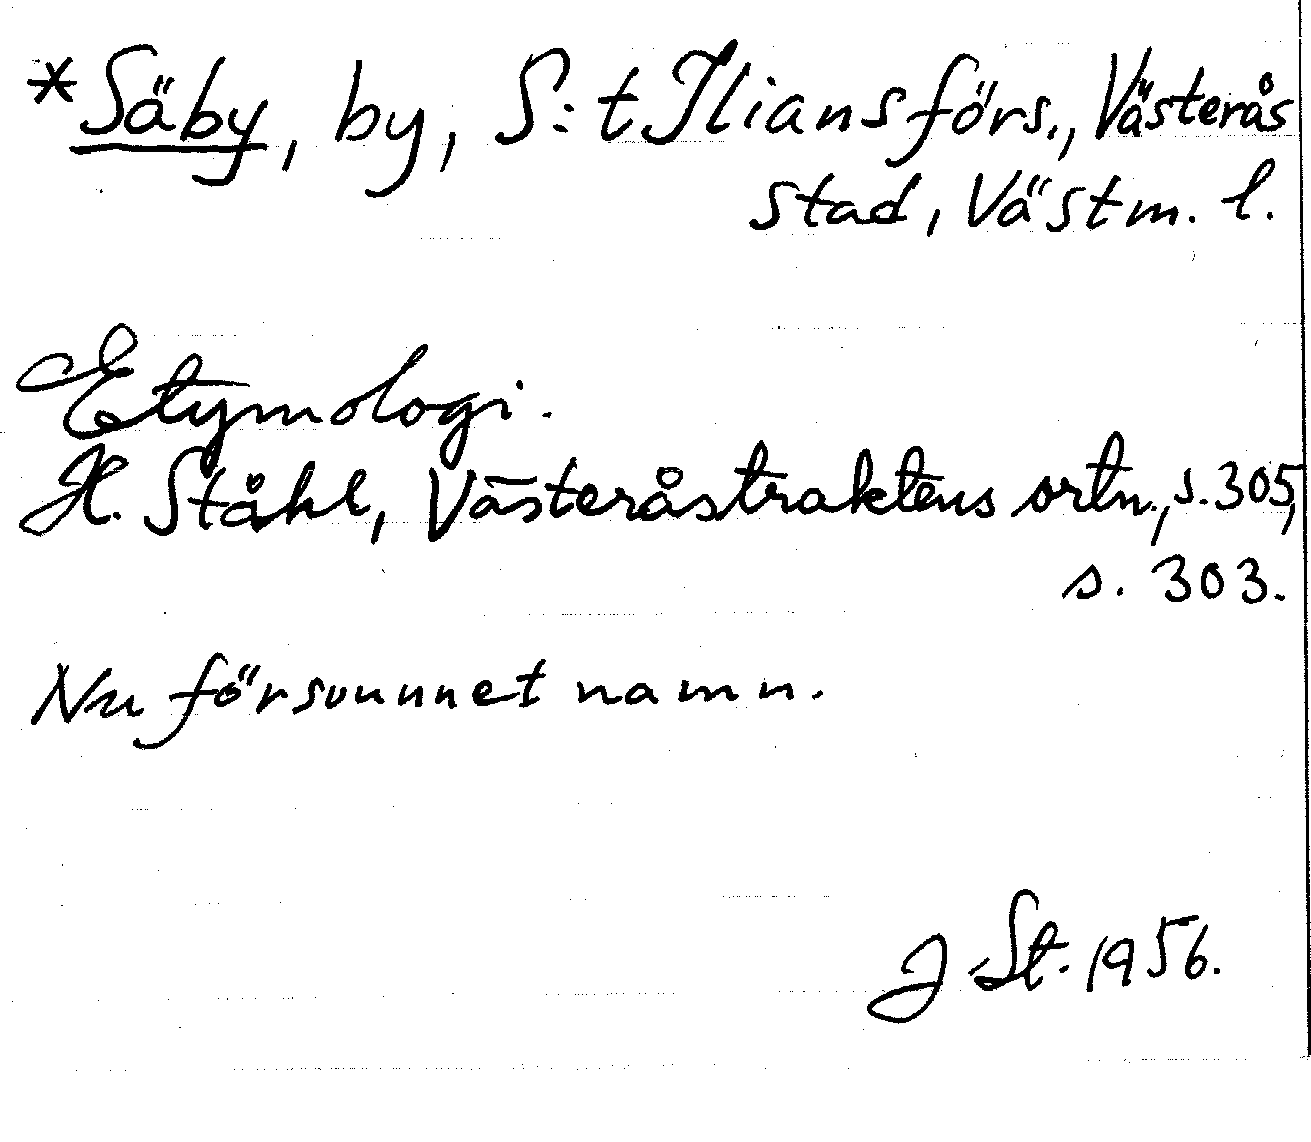 *Säby, by, S:t Ilians förs., Västerås
stad, Västm. l.
Etymologi.
H. Ståhl, Västeråstraktens ortn., s. 305,
s. 303.
Nu försvunnet namn.
J. St. 1956.